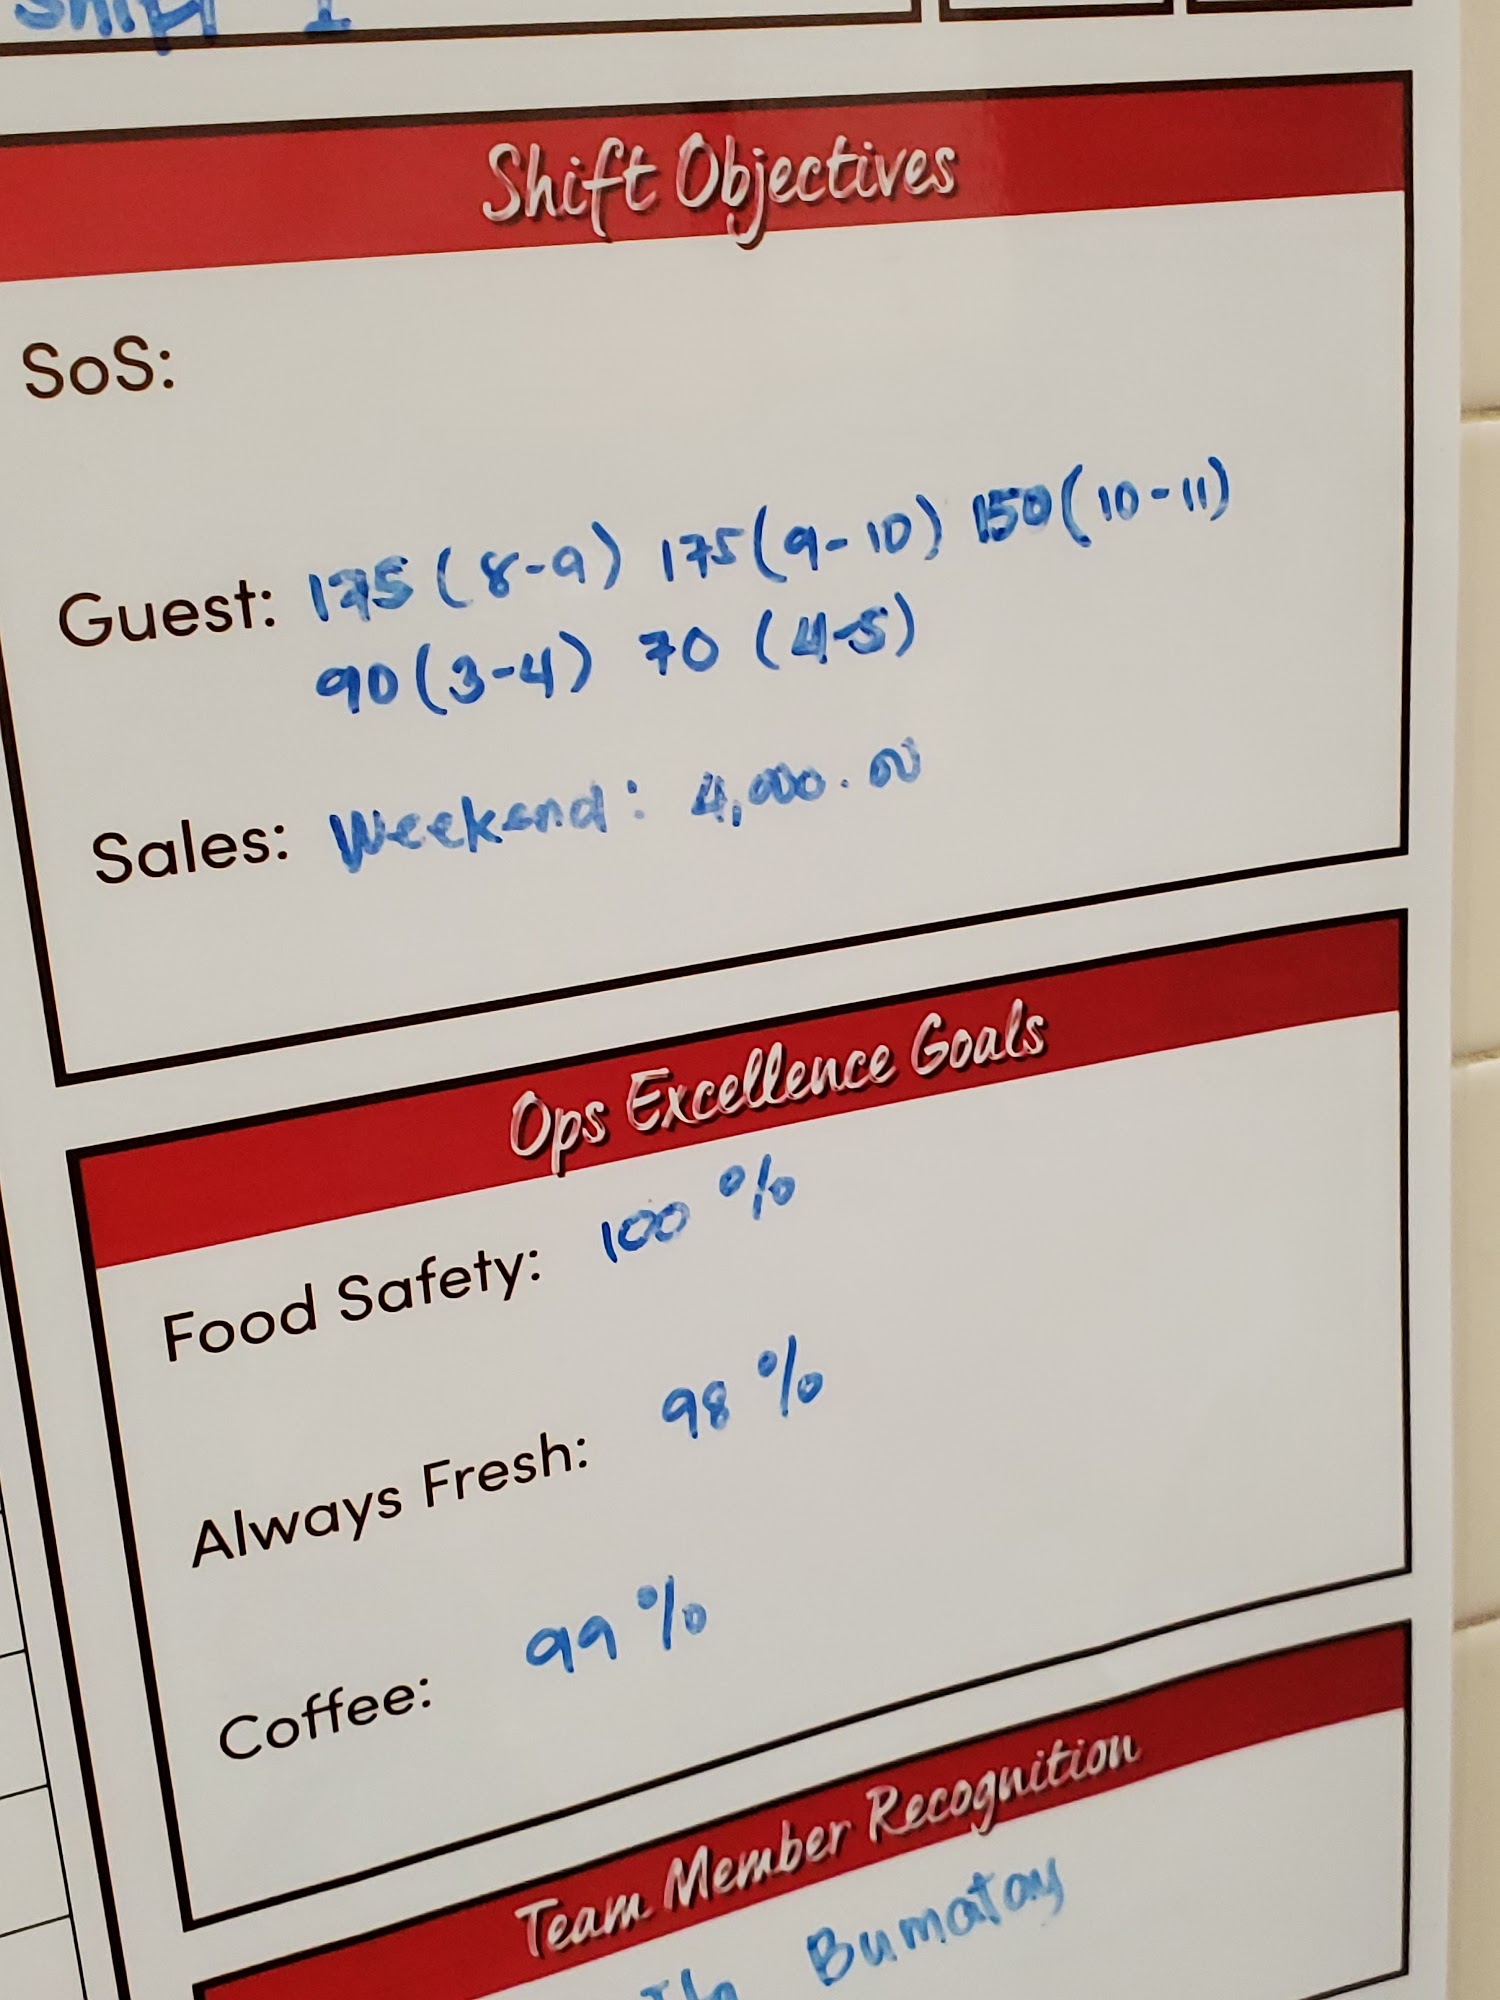 Shift 1
Shift Objectives
SoS:
Guest: 175 (8-9) 175 (9-10) 150 (10-11)
90 (3-4) 70 (4-5)
Sales: Weekend: 4,000.00
Ops Excellence Goals
Food Safety: 100 %
Always Fresh: 98 %
Coffee: 99 %
Team Member Recognition
Bumatay